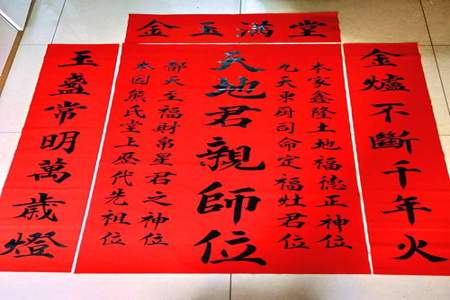 金玉滿堂
金爐不斷千年火
本家鑫隆土地福德正神位
九天東厨司命定福灶君位
天地君親師位
天至福財帛星君之神位
本因熊氏堂上歷代先祖位
玉盞常明萬歲燈